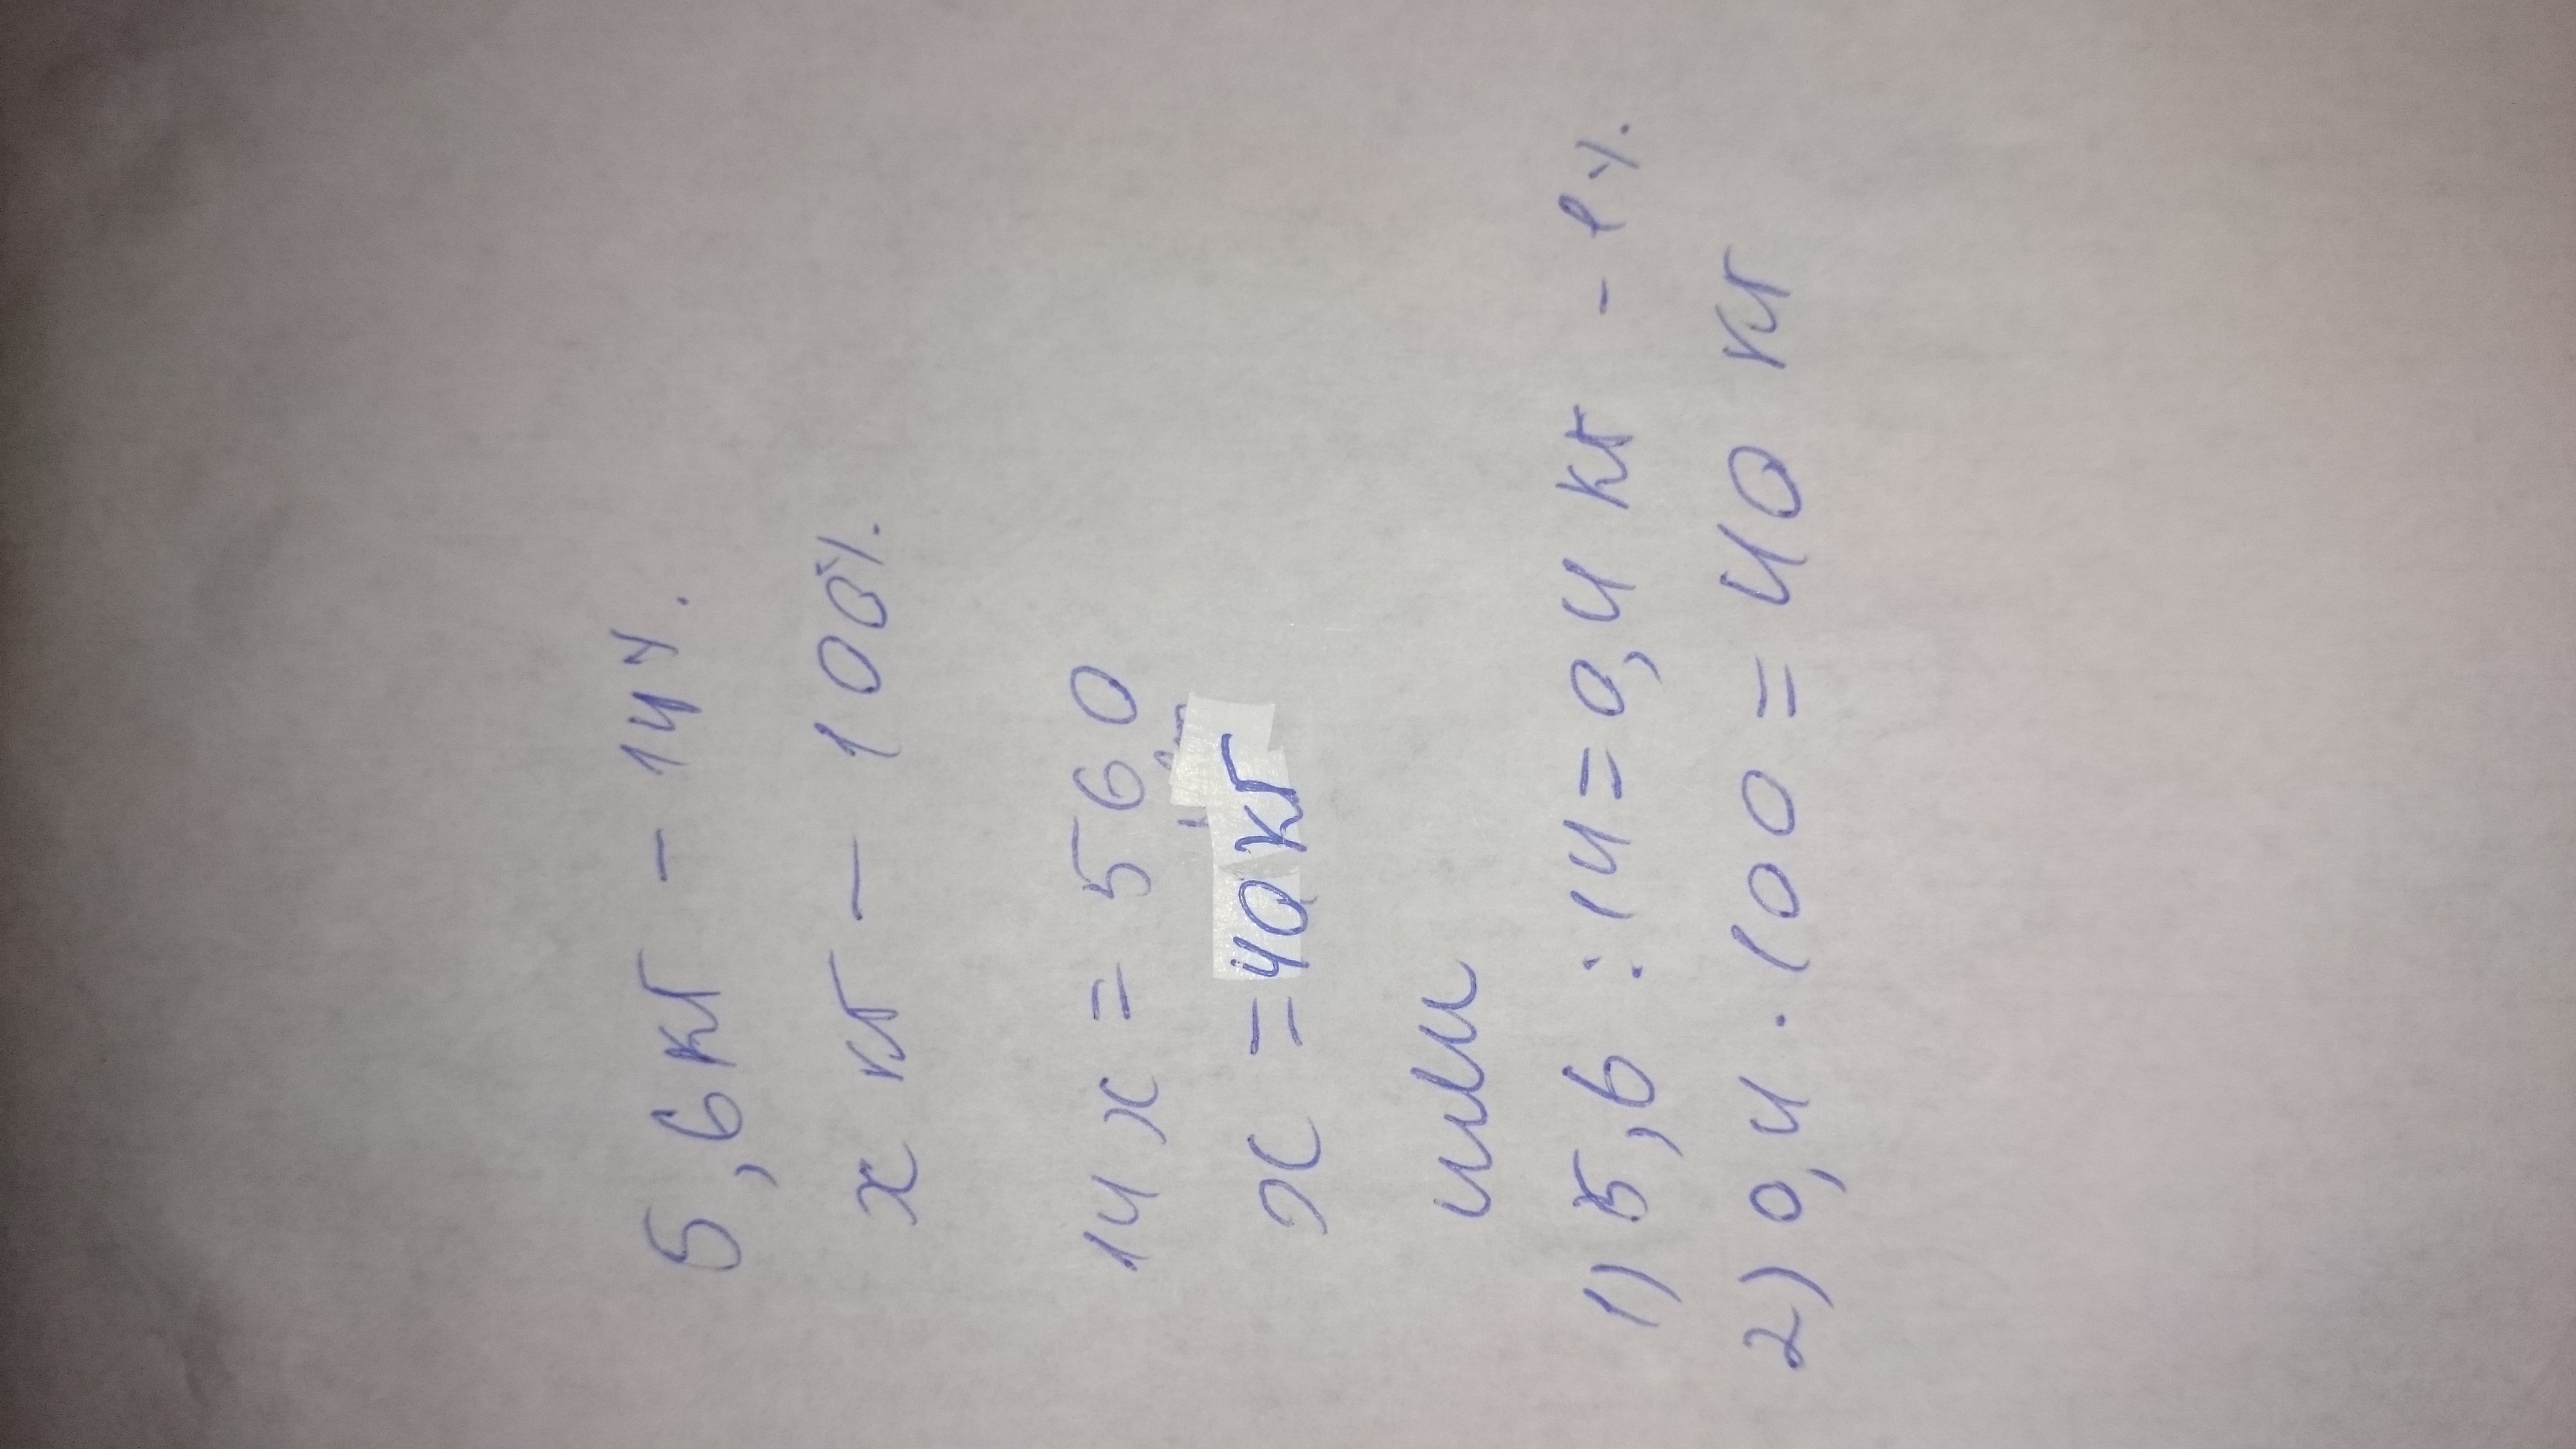 5,6 кг - 14%
х кг - 100%
14х = 560
х = 40 кг
или
1) 5,6 : 14 = 0,4 кг - 1%
2) 0,4 · 100 = 40 кг